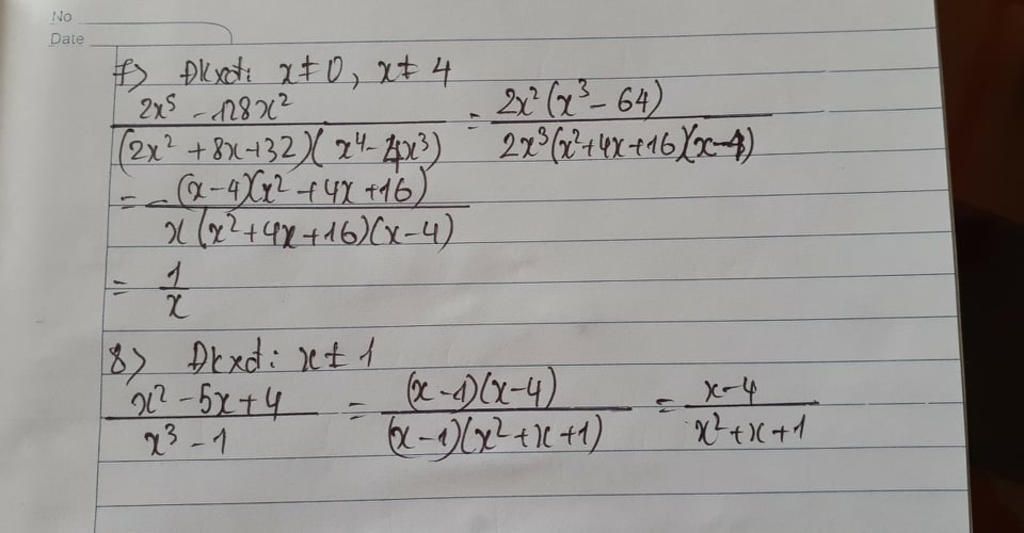 No
Date
7) Đkxđ: x ≠ 0, x ≠ 4
(2x⁵ - 128x²) / ((2x² + 8x + 32)(x⁴ - 4x³)) = (2x²(x³ - 64)) / (2x³(x² + 4x + 16)(x - 4))
= ((x - 4)(x² + 4x + 16)) / (x(x² + 4x + 16)(x - 4))
= 1 / x
8) Đkxđ: x ≠ 1
(x² - 5x + 4) / (x³ - 1) = ((x - 1)(x - 4)) / ((x - 1)(x² + x + 1)) = (x - 4) / (x² + x + 1)